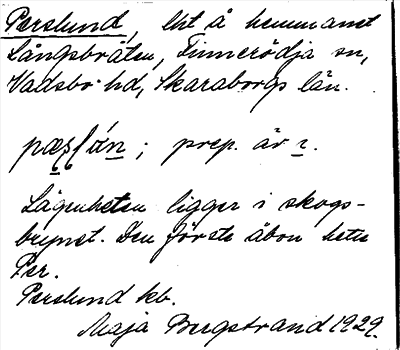 Perslund, lht å hemmanet
Långsbråten, Finnerödja sn,
Vadsbo hd, Skaraborgs län.
; prep. är
Lägenheten ligger i skogs-
brynet. Den förste åbon hette
Per.
Perslund kb.
Maja Bergstrand 1929.